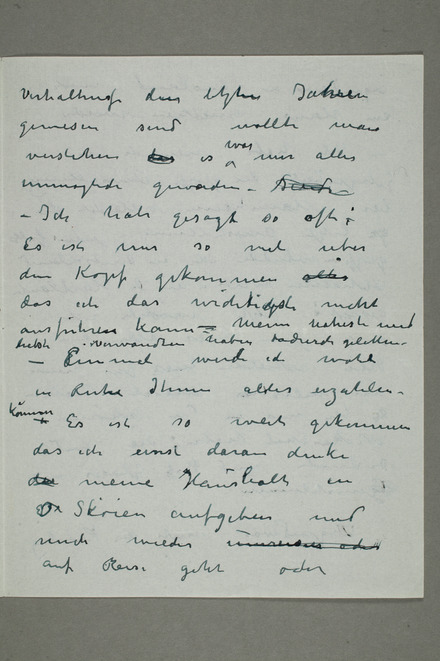 den letzten Jahren
gewesen sind wollte man
verstehen es was mir alles
geworden –
– Ich habe gesagt so oft:
Es ist mir so viel über
den Kopf gekommen alles
das ich das wichtigste nicht
ausführen kann – Meine nächste und
verwandten haben dadurch gelitten –
– Einmal werde ich wohl
in Ruhe Ihnen alles erzählen –
kommen
Es ist so weit gekommen
das ich ernst daran denke
meine Haushalt in
Skøien aufgeben und
wieder
auf Reise geht oder